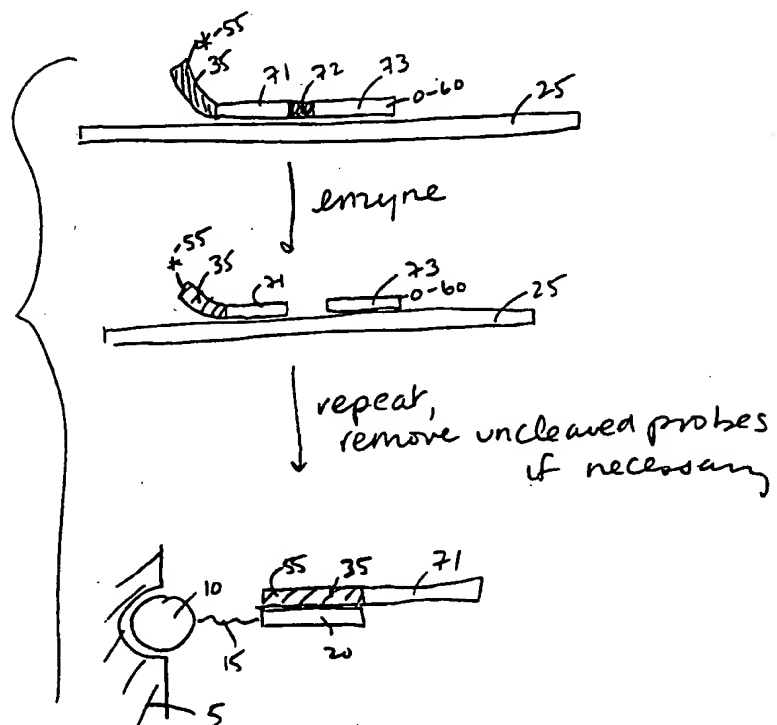 *-55
35
71
72
73
0-60
25
enzyme
*-55
35
71
73
0-60
25
repeat,
remove uncleaved probes
if necessary
10
55
35
71
15
20
5